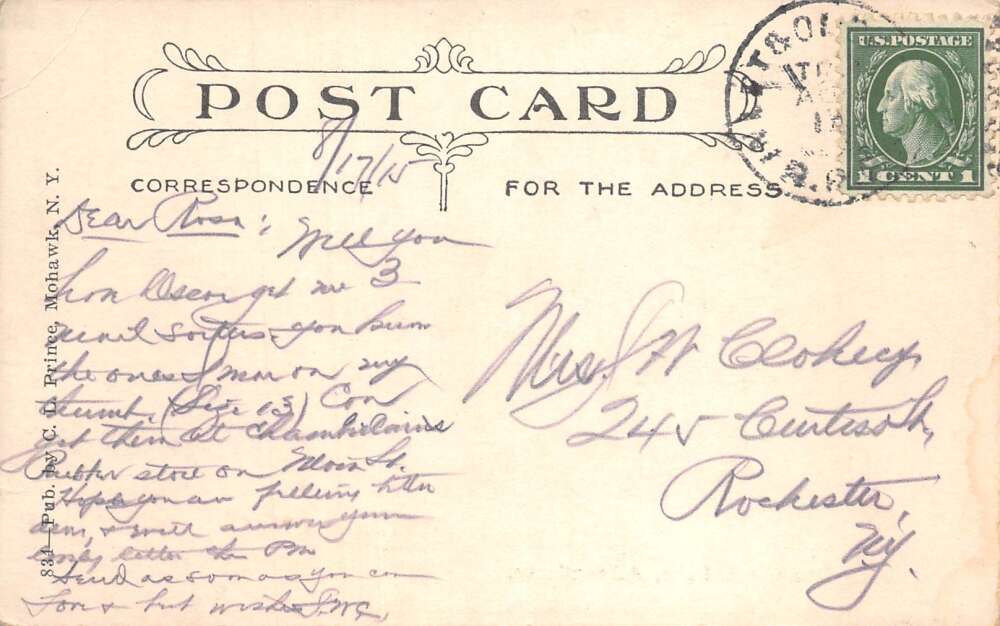 POST CARD
8/17/15
CORRESPONDENCE
FOR THE ADDRESS
U.S. POSTAGE
1 CENT 1
R.P.O.
834—Pub. by C. D. Prince, Mohawk, N. Y.
Dear Rosa: Will you
have Oscar get me 3
sorters. you know
the ones I wear on my
thumb. (Size 13) Can
get them at Chamberlains
Rubber store on Main St.
Hope you are feeling better
dear, & will answer your
lovely letter this PM
Send as soon as you can
Love & best wishes J.W.C.
Mrs. J W Clokey
245 Curtis St,
Rochester,
N.Y.